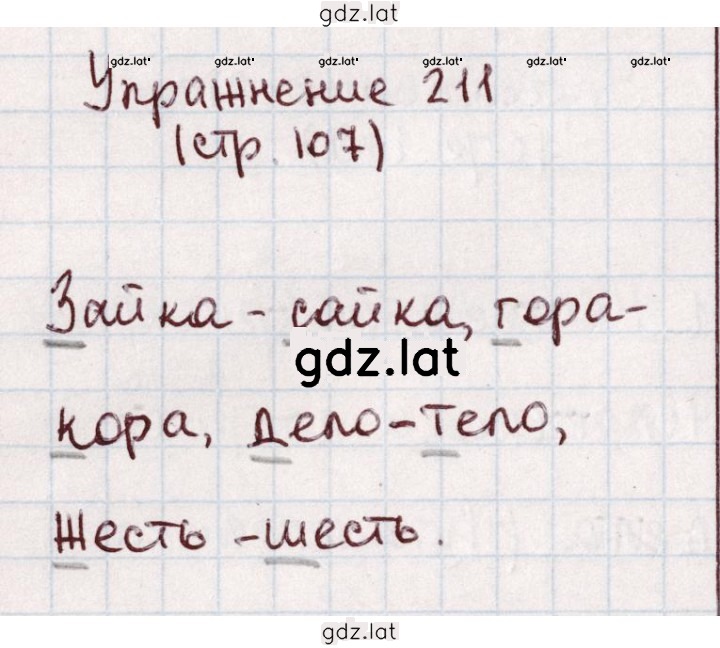 gdz.lat
gdz.lat gdz.lat gdz.lat gdz.lat gdz.lat gdz.lat
Упражнение 211
(стр. 107)
Зайка - сайка, гора-
gdz.lat
кора, дело-тело,
жесть - шесть.
gdz.lat